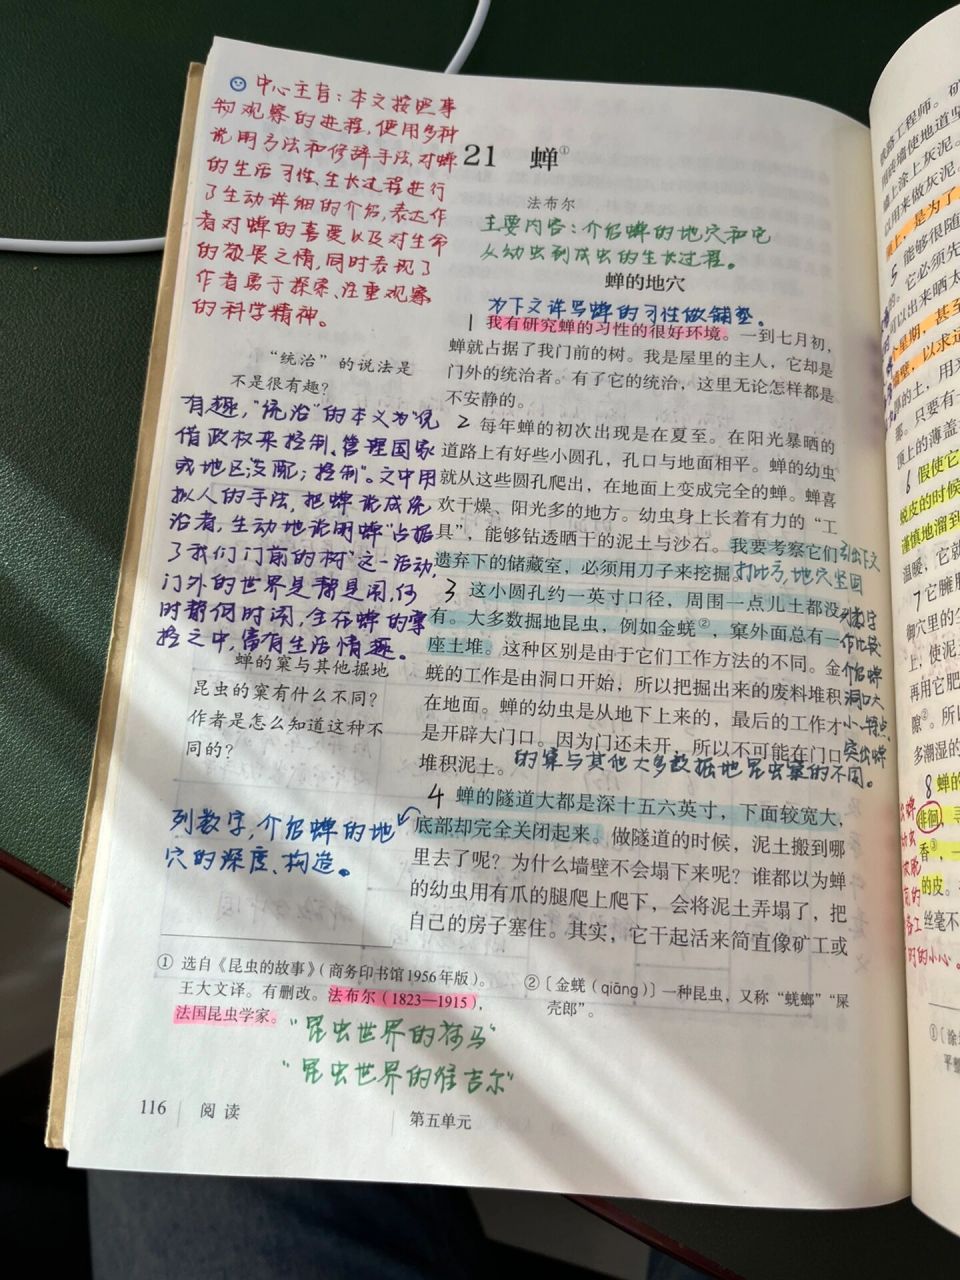 中心主旨：本文按照事
物观察的进程，使用多种
说明方法和修辞手法，对蝉
的生活习性、生长过程进行
了生动详细的介绍，表达作
者对蝉的喜爱以及对生命
的敬畏之情，同时表现了
作者勇于探索、注重观察
的科学精神。
21 蝉①
法布尔
主要内容：介绍蝉的地穴和它
从幼虫到成虫的生长过程。
蝉的地穴
为下文详写蝉的习性做铺垫。
1 我有研究蝉的习性的很好环境。一到七月初，
蝉就占据了我门前的树。我是屋里的主人，它却是
门外的统治者。有了它的统治，这里无论怎样都是
不安静的。
“统治”的说法是
不是很有趣？
有趣，“统治”的本义为“凭
借政权来控制、管理国家
或地区；支配；控制”。文中用
拟人的手法，把蝉说成统
治者，生动地说明蝉“占据
了我们门前的树”这一活动，
门外的世界是静是闹，何
时静何时闹，全在蝉的掌
控之中，富有生活情趣。
2 每年蝉的初次出现是在夏至。在阳光暴晒的
道路上有好些小圆孔，孔口与地面相平。蝉的幼虫
就从这些圆孔爬出，在地面上变成完全的蝉。蝉喜
欢干燥、阳光多的地方。幼虫身上长着有力的“工
具”，能够钻透晒干的泥土与沙石。我要考察它们
遗弃下的储藏室，必须用刀子来挖掘。
引出下文
打比方，地穴坚固
3 这小圆孔约一英寸口径，周围一点儿土都没
有。大多数掘地昆虫，例如金蜣②，窠外面总有一
座土堆。这种区别是由于它们工作方法的不同。金
蜣的工作是由洞口开始，所以把掘出来的废料堆积
在地面。蝉的幼虫是从地下上来的，最后的工作才
是开辟大门口。因为门还未开，所以不可能在门口
堆积泥土。
列数字
作比较
介绍蝉
洞口大
小、特点，
突出蝉
的窠与其他大多数掘地昆虫窠的不同。
蝉的窠与其他掘地
昆虫的窠有什么不同？
作者是怎么知道这种不
同的？
4 蝉的隧道大都是深十五六英寸，下面较宽大，
底部却完全关闭起来。做隧道的时候，泥土搬到哪
里去了呢？为什么墙壁不会塌下来呢？谁都以为蝉
的幼虫用有爪的腿爬上爬下，会将泥土弄塌了，把
自己的房子塞住。其实，它干起活来简直像矿工或
列数字，介绍蝉的地
穴的深度、构造。
① 选自《昆虫的故事》（商务印书馆1956年版）。
王大文译。有删改。法布尔（1823—1915），
法国昆虫学家。
② 〔金蜣（qiāng）〕一种昆虫，又称“蜣螂”“屎
壳郎”。
“昆虫世界的荷马”
“昆虫世界的维吉尔”
116 阅读
第五单元
铁路工程师。矿
上涂上灰泥。
以用来做灰泥。
5 能够很随
6 假使它
蜕皮的时候
谨慎地溜到
7 它臃肿
再用它肥
隙②。所以
多潮湿的
8 蝉的
徘徊，寻
香③，一
的皮。
丝毫不